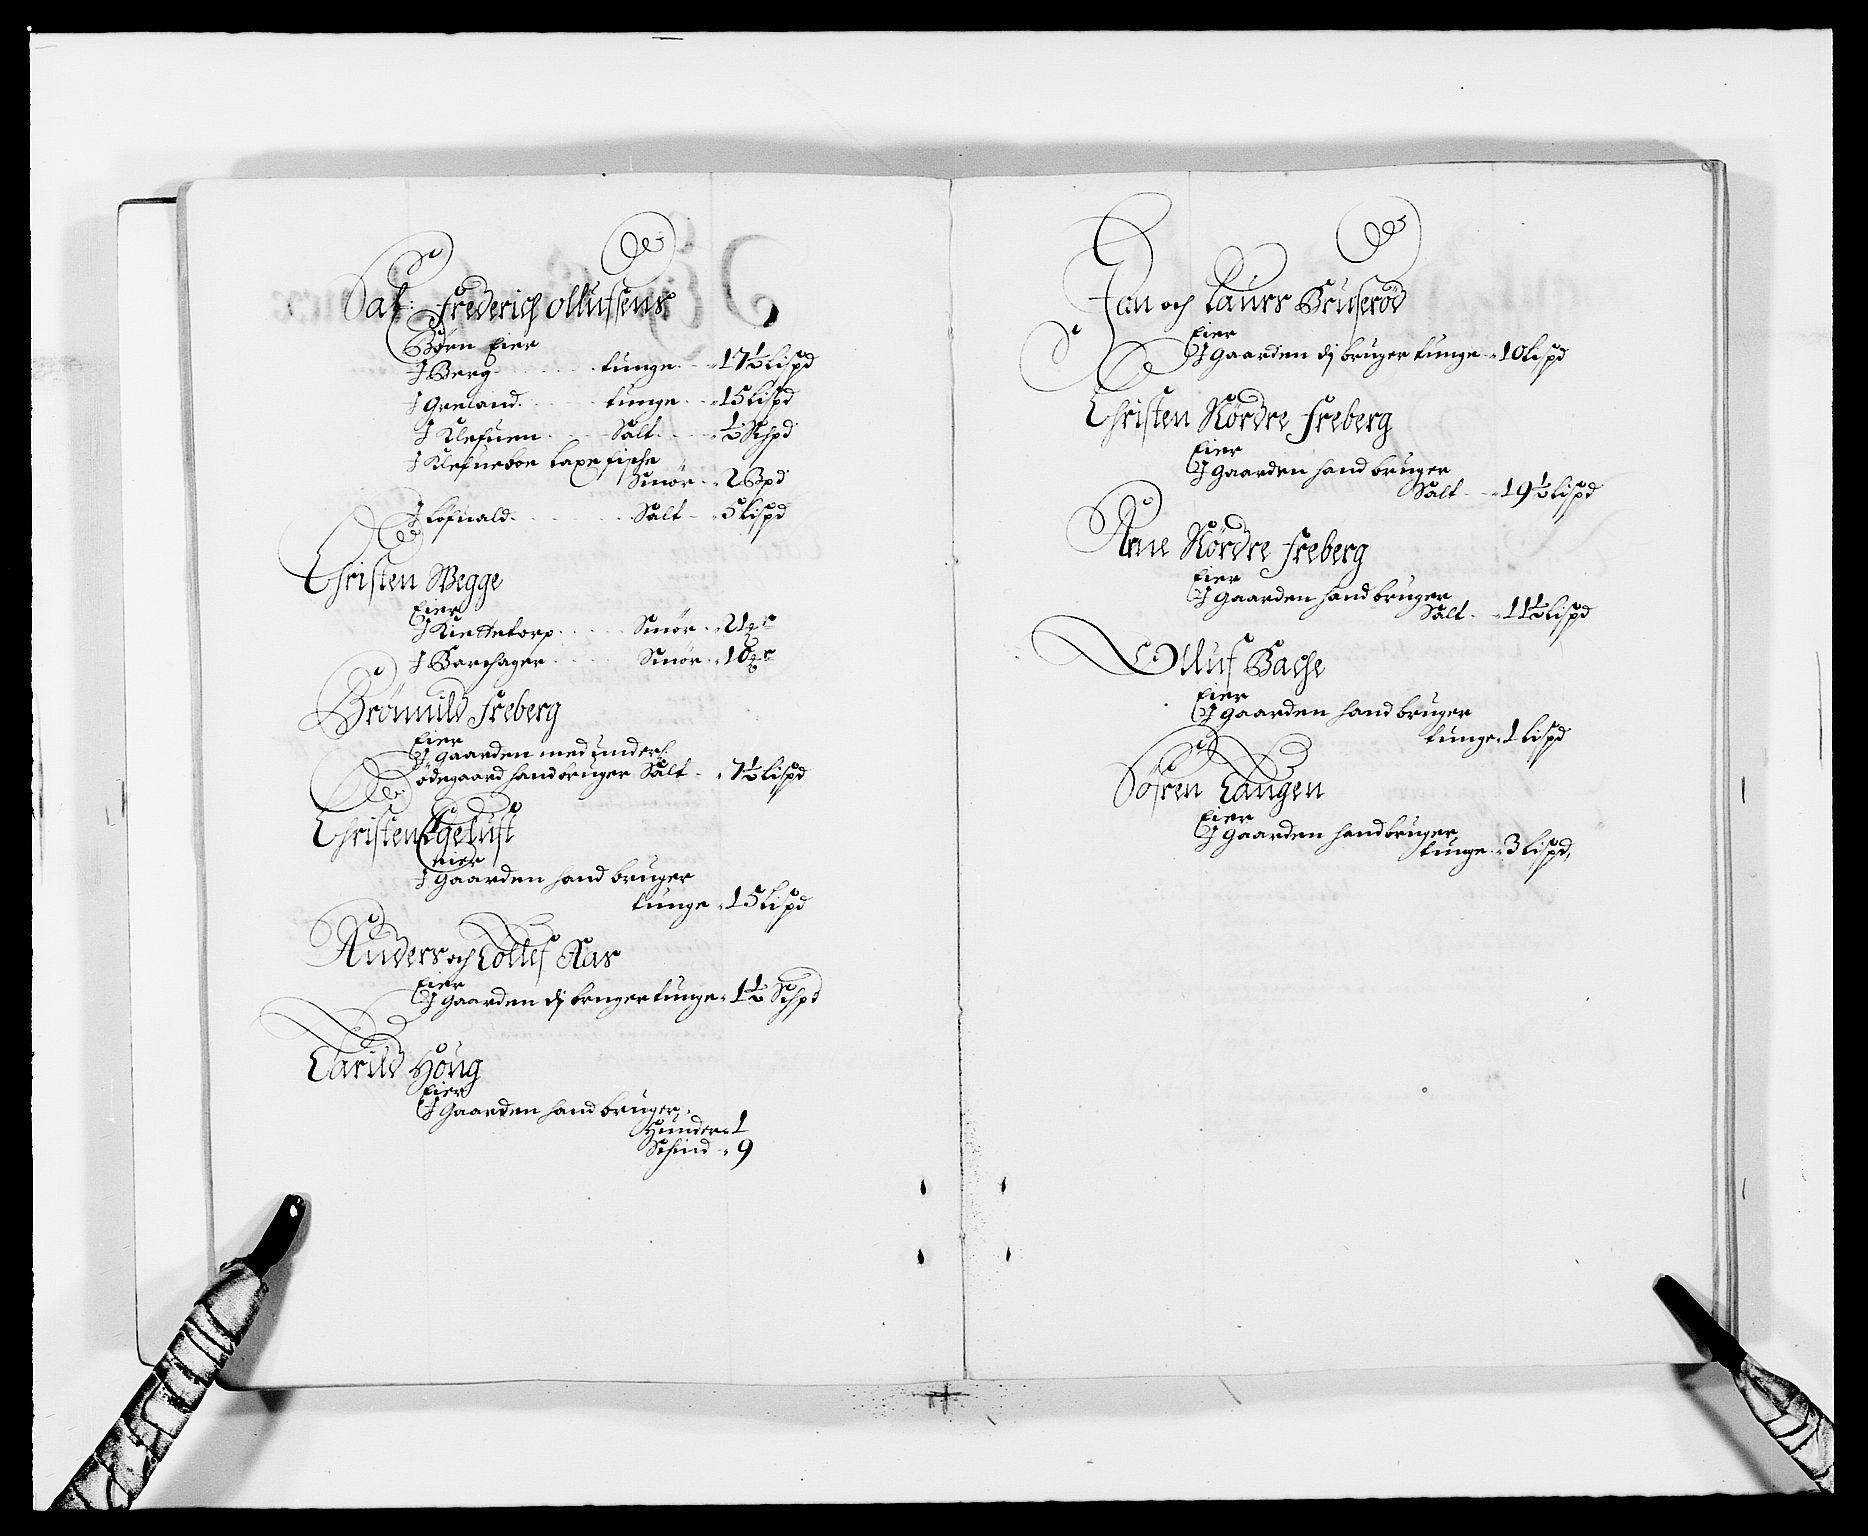 Sal: Frederich Ollufsens
Børn Eier
J Berg tunge 17½ lispd
J Greland tunge 15 lispd
J Klefuen Salt ½ Schpd
J Klefueboe laxefische
Smør 2 Bpd
J Lofuald Salt 5 lispd
Christen Wegge
Eier
J Kiettelorp Smør 21
J Barchager Smør 10
Brömild Freberg
Eier
J gaarden med under
ödegaard hand bruger Salt 7½ lispd
Christen Egelust
eier
J gaarden hand bruger
tunge 15 lispd
Anders och Tollef Aas
Eier
J gaarden dj bruger tunge 1½ Schpd
Tarild Houg
Eier
J Gaarden hand bruger
Hunder 1
Schind 9
Jan och Laurs Bruserød
Eier
J gaarden dj bruger tunge 10 lispd
Christen Nördre Freberg
Eier
J gaarden hand bruger
Salt 19½ lispd
Arne Nördre Freberg
Eier
J gaarden hand bruger
Salt 11½ lispd
Olluf Bache
Eier
J gaarden hand bruger
tunge 1 lispd
Søfren Langen
Eier
J gaarden hand bruger
tunge 3 lispd